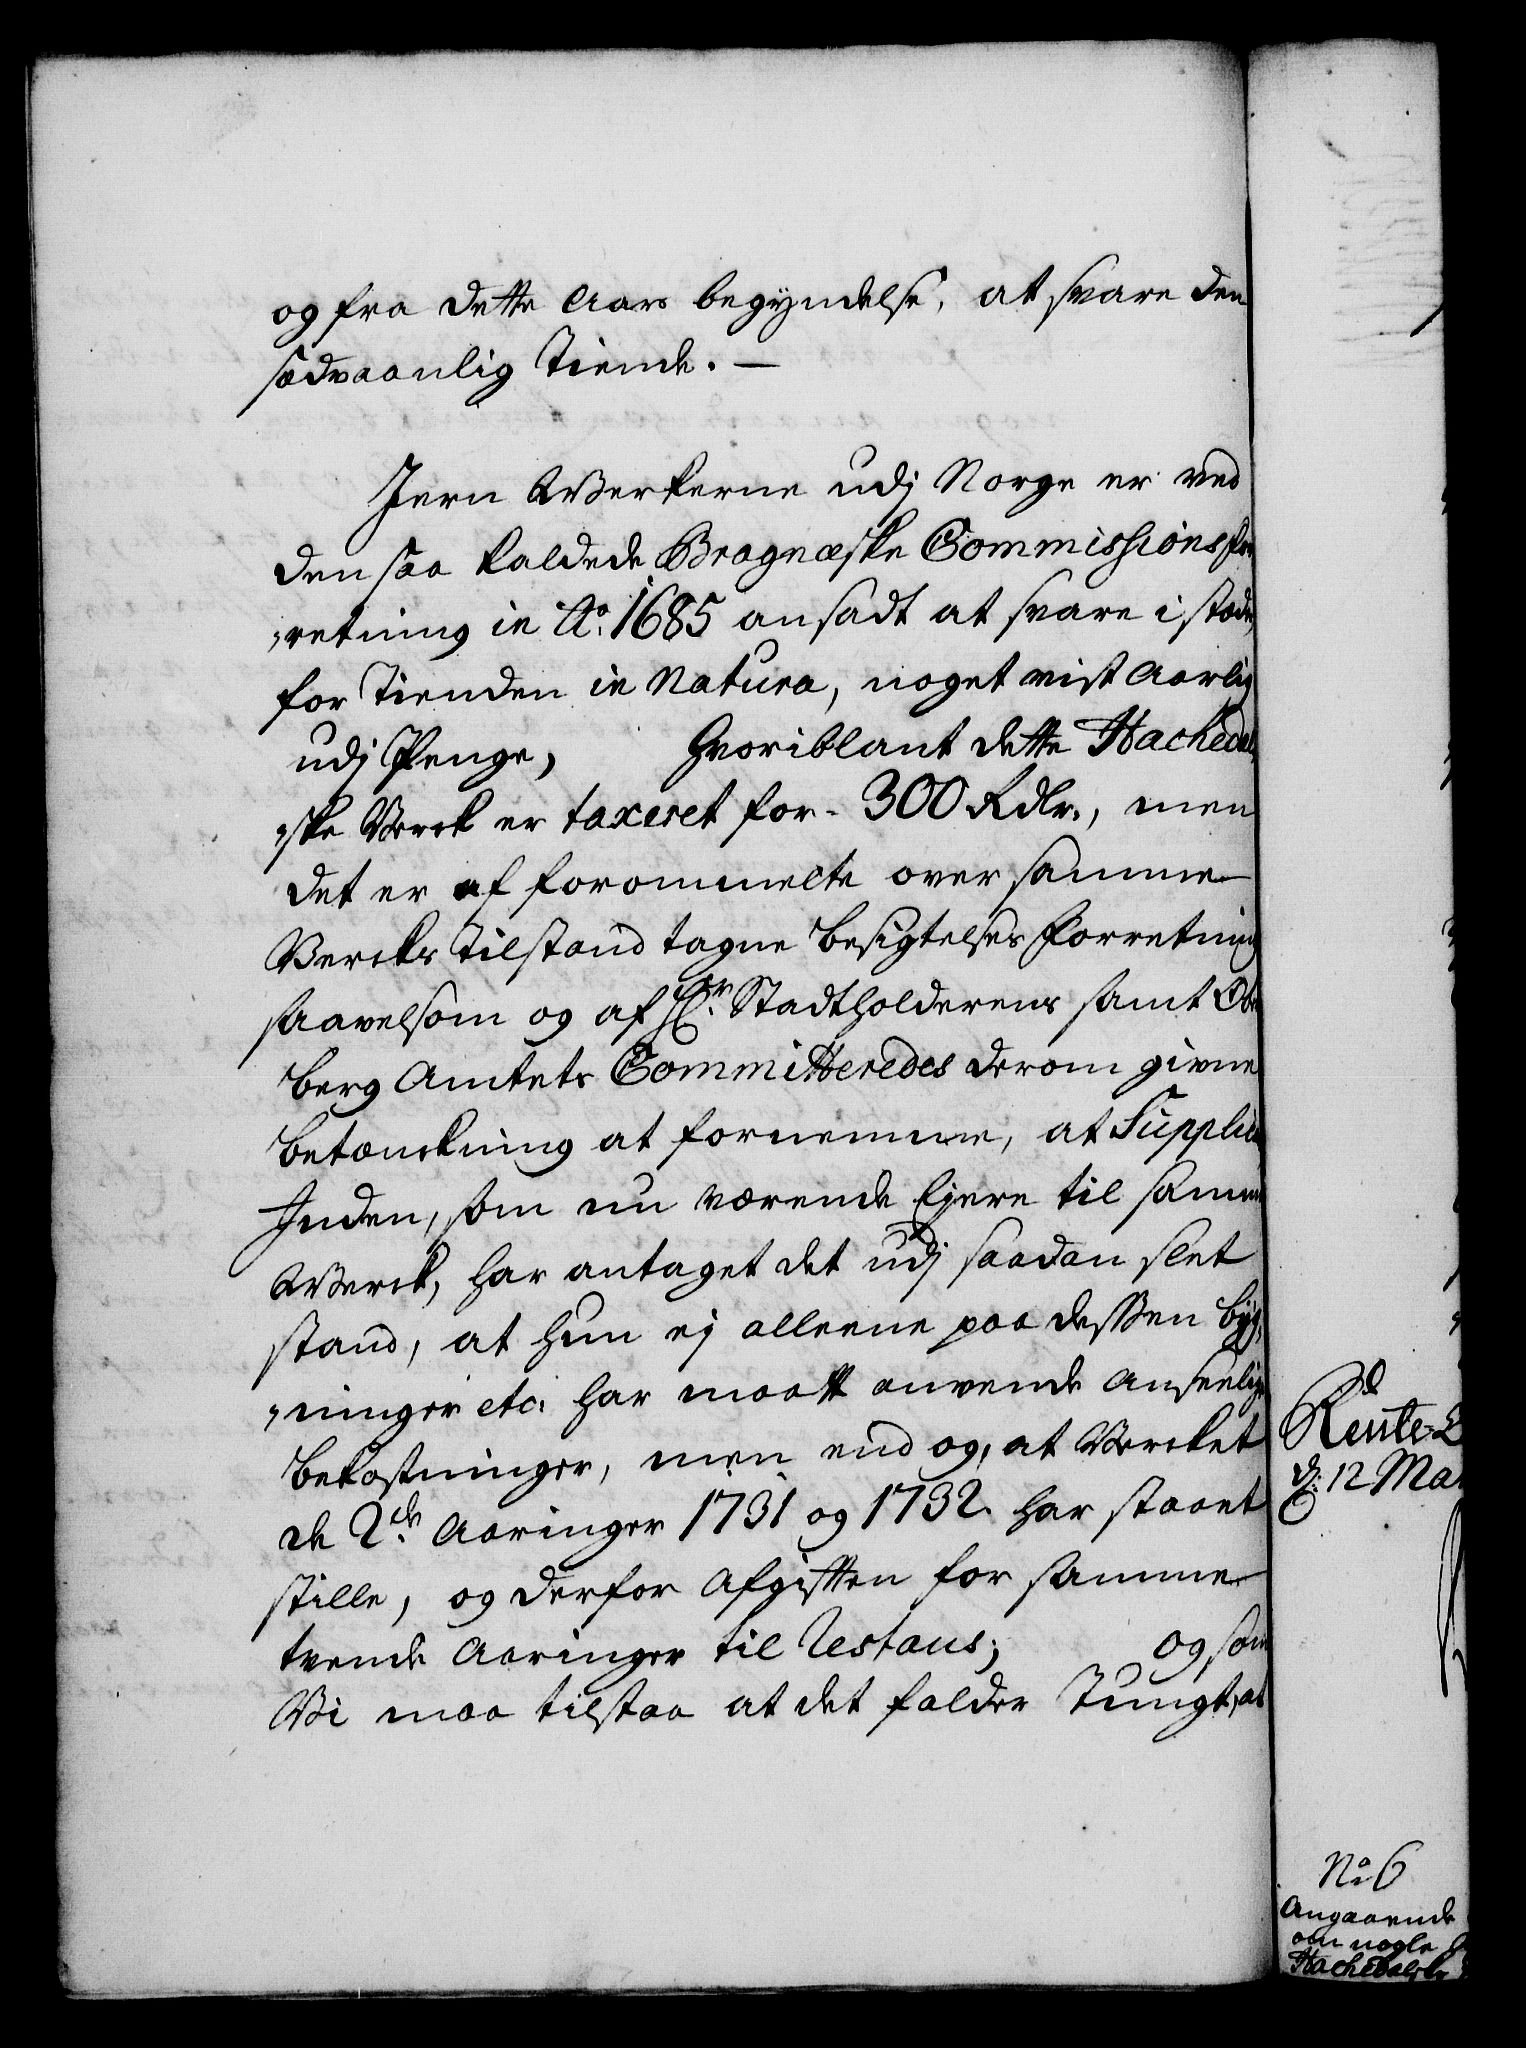 og fra dette Aars begyndelse, at svare den
sædvaanlig Tiende. —
Jern Werkerne udj Norge er ved
den saa kaldede Bragnæske Commissions for
„retning in Aº. 1685 ansadt at svare i stæde
for Tienden in Natura, noget vist Aarlig
udj Penge, hvoriblant dette Hachedal
„ske Verck er taxeret for - 300 Rdlr., men
det er af forommelte over samme
Vercks Tilstand tagne Besigtelses Forretning
saavelsom og af Hr. Stadtholderens samt Ober
berg Amtets Committeredes derom givne
Betænckning at fornemme, at Supplican
Inden, som nu værende Ejere til samme
Werck, har antaget det udj saadan slet
stand, at hun ej alleene paa dessen byg„
„ninger etc. har maatt anvende Anseelige
Bekostninger, men end og, at Vercket
de 2de Aaringer 1731 og 1732. har staaet
stille, og derfor Afgiften for samme
tvende Aaringer til Restans; og som
Vi maa tilstaa at det falder Tungt, at
Rente-
d: 12 Mar
No 6
Angaaende
om nogle
Hachedalske